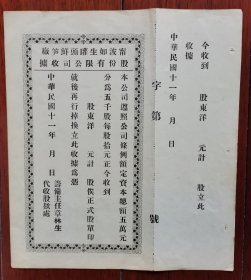 今收到 股東洋 元計 股立此
收據
中華民國十一年 月 日
字第 號
甯波如生罐頭鮮笋廠
股份有限公司收據
本公司遵照公司條例額定資本總額五萬元
分為五千股每股拾元正今收到
股東洋 元計 股俟正式股單印
就後再行掉換立此收據為憑
中華民國十一年 月 日
籌備主任章林生
代收股款處